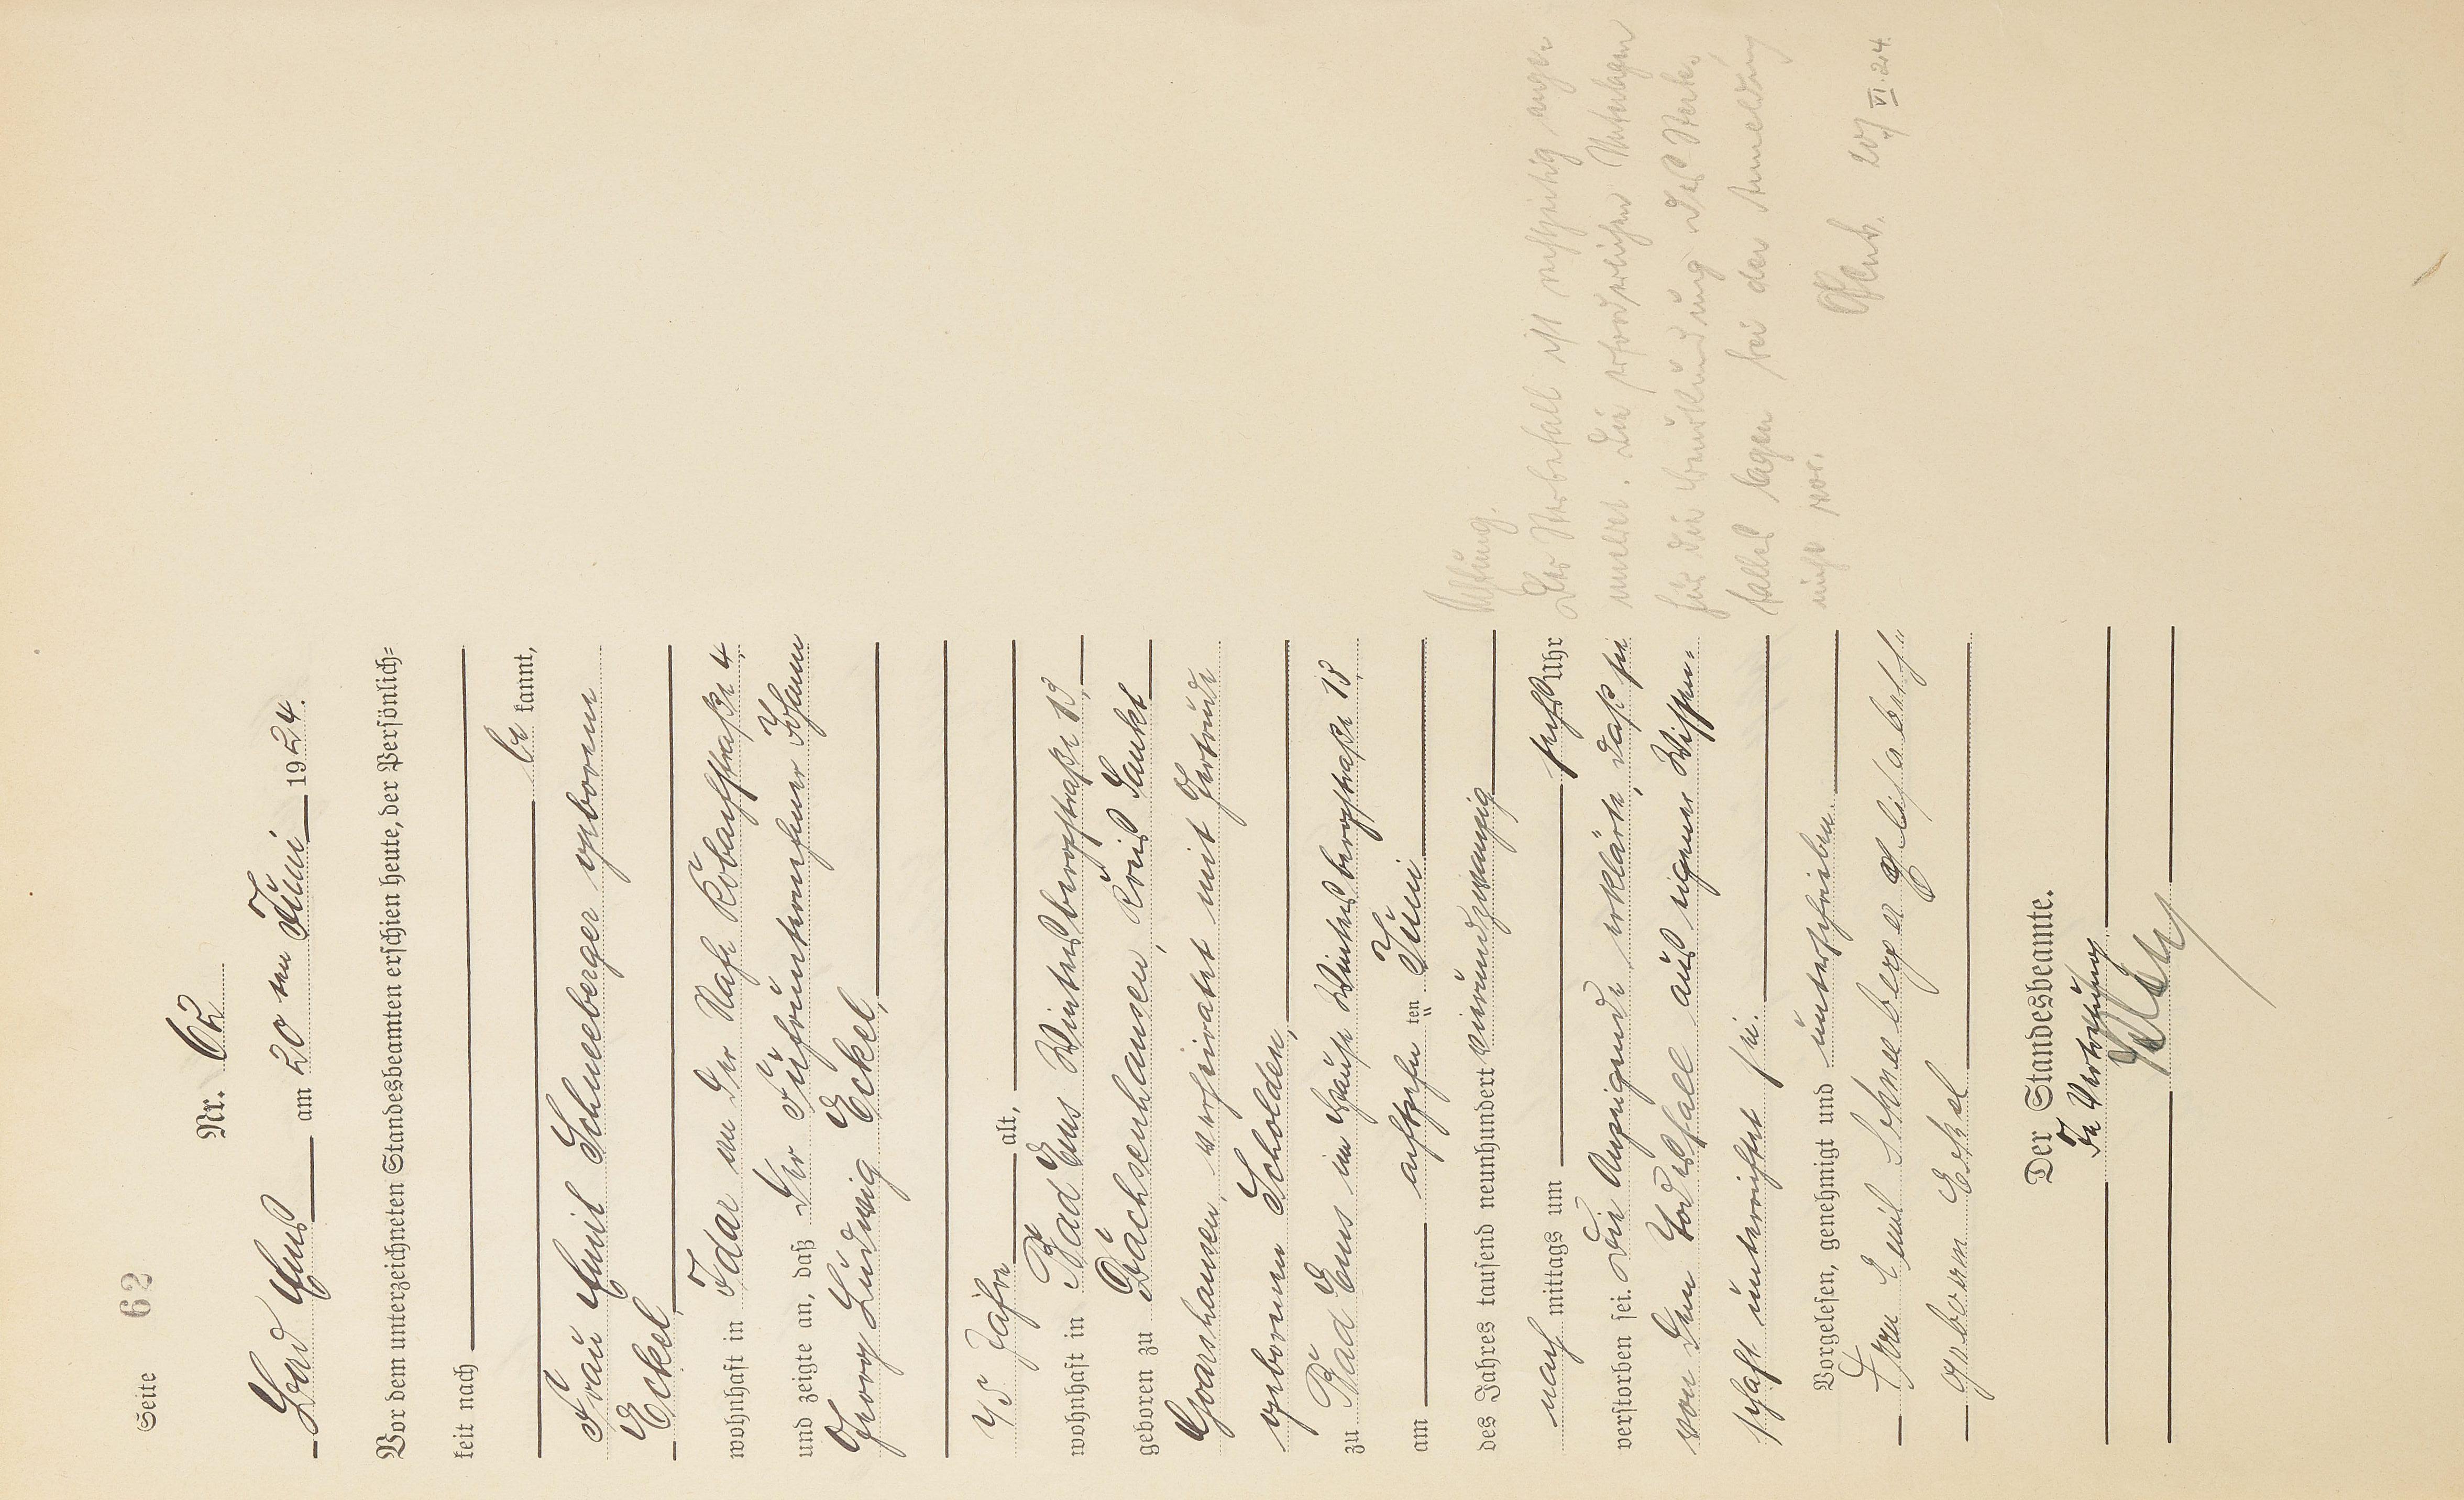 Seite 62
Nr. 62
Bad Ems am 20 ten Juni 1924.
Vor dem unterzeichneten Standesbeamten erschien heute, der Persönlich-
keit nach
be kannt,
Frau Emil Schneeberger geborene
Eckel,
wohnhaft in Idar an der Nahe Kobachstraße 4,
und zeigte an, daß der Fuhrunternehmer Johann
Georg Ludwig Eckel,
75 Jahre alt,
wohnhaft in Bad Ems Wintersbergstraße 18,
geboren zu Dachsenhausen, Kreis Sankt
Goarshausen, verheiratet mit Gertrude
geborenen Scholden,
zu Bad Ems im Hause Wintersbergstraße 18,
am achtzehn ten Juni
des Jahres tausend neunhundert vierundzwanzig
nach mittags um sechs Uhr
verstorben sei. Die Anzeigende erklärte, daß sie
von dem Todesfall aus eigener Wissen-
schaft unterrichtet sei.
Vorgelesen, genehmigt und unterschrieben.
Frau Emil Schneeberger Elisabeth
geborene Eckel
Der Standesbeamte.
In Vertretung
Der Sterbefall ist rechtzeitig ange-
meldet. Die erforderlichen Unterlagen
für die Beurkundung des Sterbe-
falles lagen bei der Anmeldung
nicht vor.
20/VI.24.